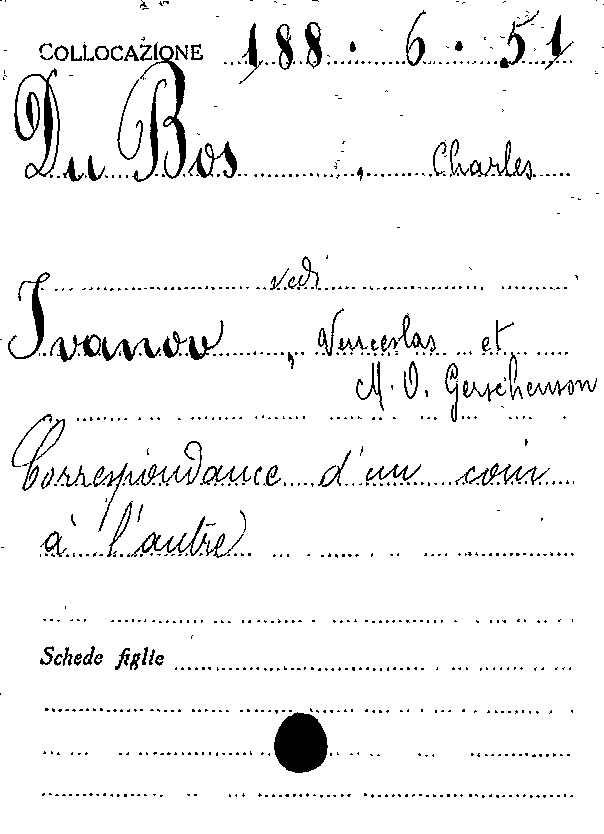 COLLOCAZIONE 188 . 6 . 51
Du Bos , Charles
vedi
Ivanov , Venceslas et
M. O. Gerschenson
Correspondance d'un coin
à l'autre
Schede figlie